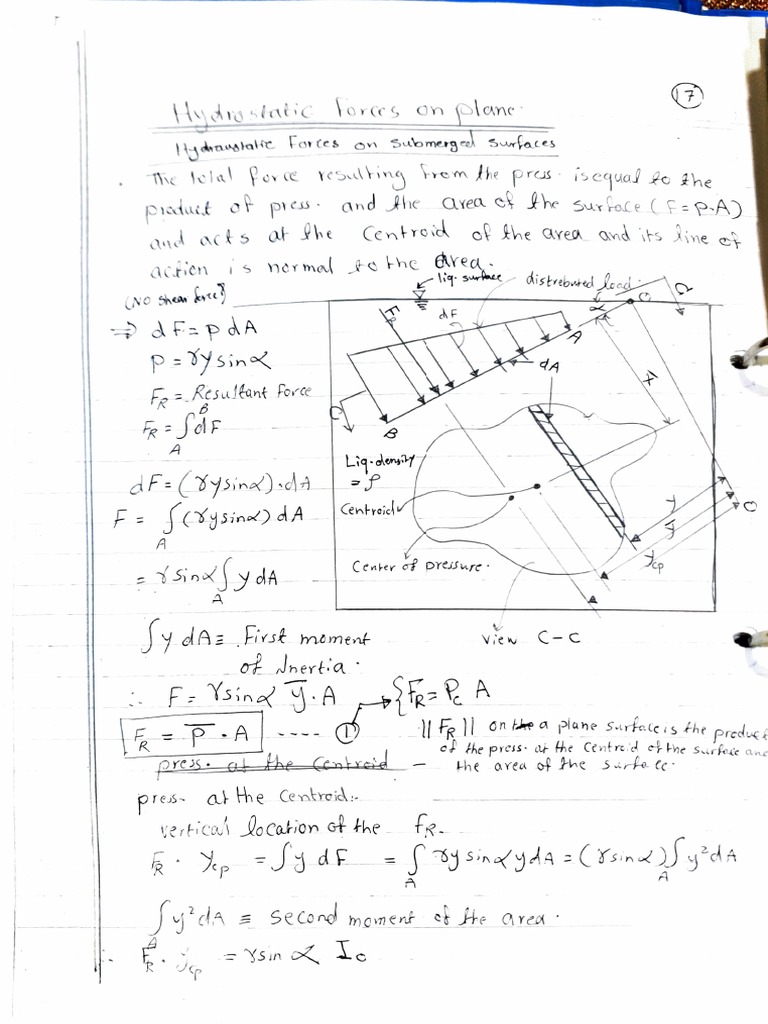 17
Hydrostatic Forces on plane.
Hydraustatic Forces on submerged surfaces
The total force resulting from the press. is equal to the
product of press. and the area of the surface (F = P.A)
and acts at the centroid of the area and its line of
action is normal to the area.
(No shear force)
liq. surface
distrebuted load.
⇒ dF = p dA
P = γy sinα
FR = Resultant Force
FR = ∫ dF
B
A
dF = (γy sinα).dA
F = ∫ (γy sinα) dA
A
= γ sinα ∫ y dA
A
FR
dF
α
O
A
dA
B
C
C
Liq. density
= ρ
Centroid
Center of pressure.
y
ȳ
ycp
O
View C-C
∫ y dA ≡ First moment
of Inertia.
∴ F = γ sinα ȳ . A
{FR = Pc A
FR = P̄ . A ---- ①
||FR|| on the a plane surface is the product
of the press. at the centroid of the surface and
the area of the surface.
press. at the centroid -
press. at the centroid:-
vertical location of the FR.
FR . ycp = ∫ y dF = ∫ γy sinα y dA = (γ sinα) ∫ y² dA
A
A
∫ y² dA ≡ second moment of the area.
A
∴ FR . ycp = γ sin α Io